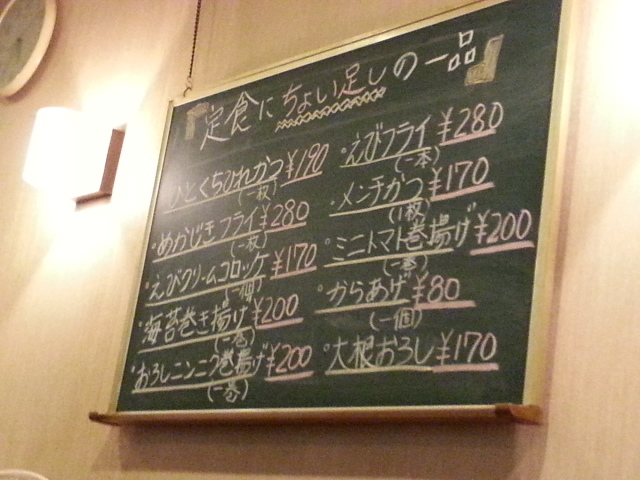 定食にちょい足しの一品
ひとくちひれかつ ¥190
(一枚)
・めかじきフライ ¥280
(一枚)
・えびクリームコロッケ ¥170
(一個)
・海苔巻き揚げ ¥200
(一巻)
・おろしニンニク巻揚げ ¥200
(一巻)
・えびフライ ¥280
(一本)
・メンチかつ ¥170
(1枚)
・ミニトマト巻揚げ ¥200
(一巻)
・からあげ ¥80
(一個)
・大根おろし ¥170